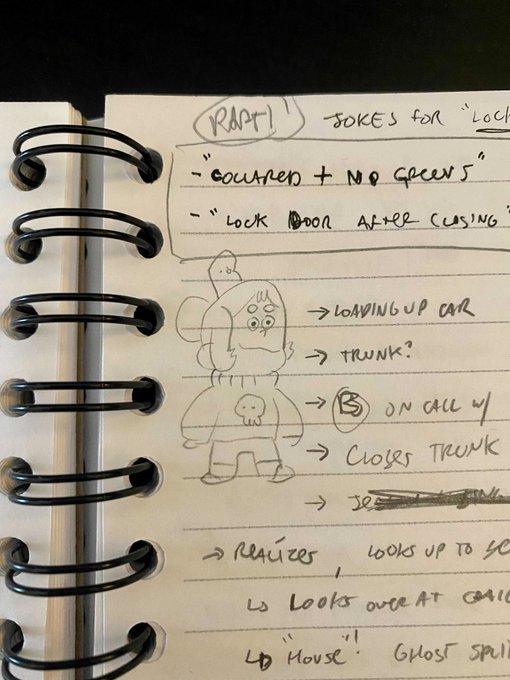 JOKES FOR "LOCK
- "COLLARED + NO GREENS"
- "LOCK DOOR AFTER CLOSING"
→ LOADING UP CAR
→ TRUNK?
→ B ON CALL W/
→ CLOSES TRUNK
→
→ REALIZES, LOOKS UP TO SE
↳ LOOKS OVER AT CRAIG
↳ "HOUSE"! GHOST SPLI